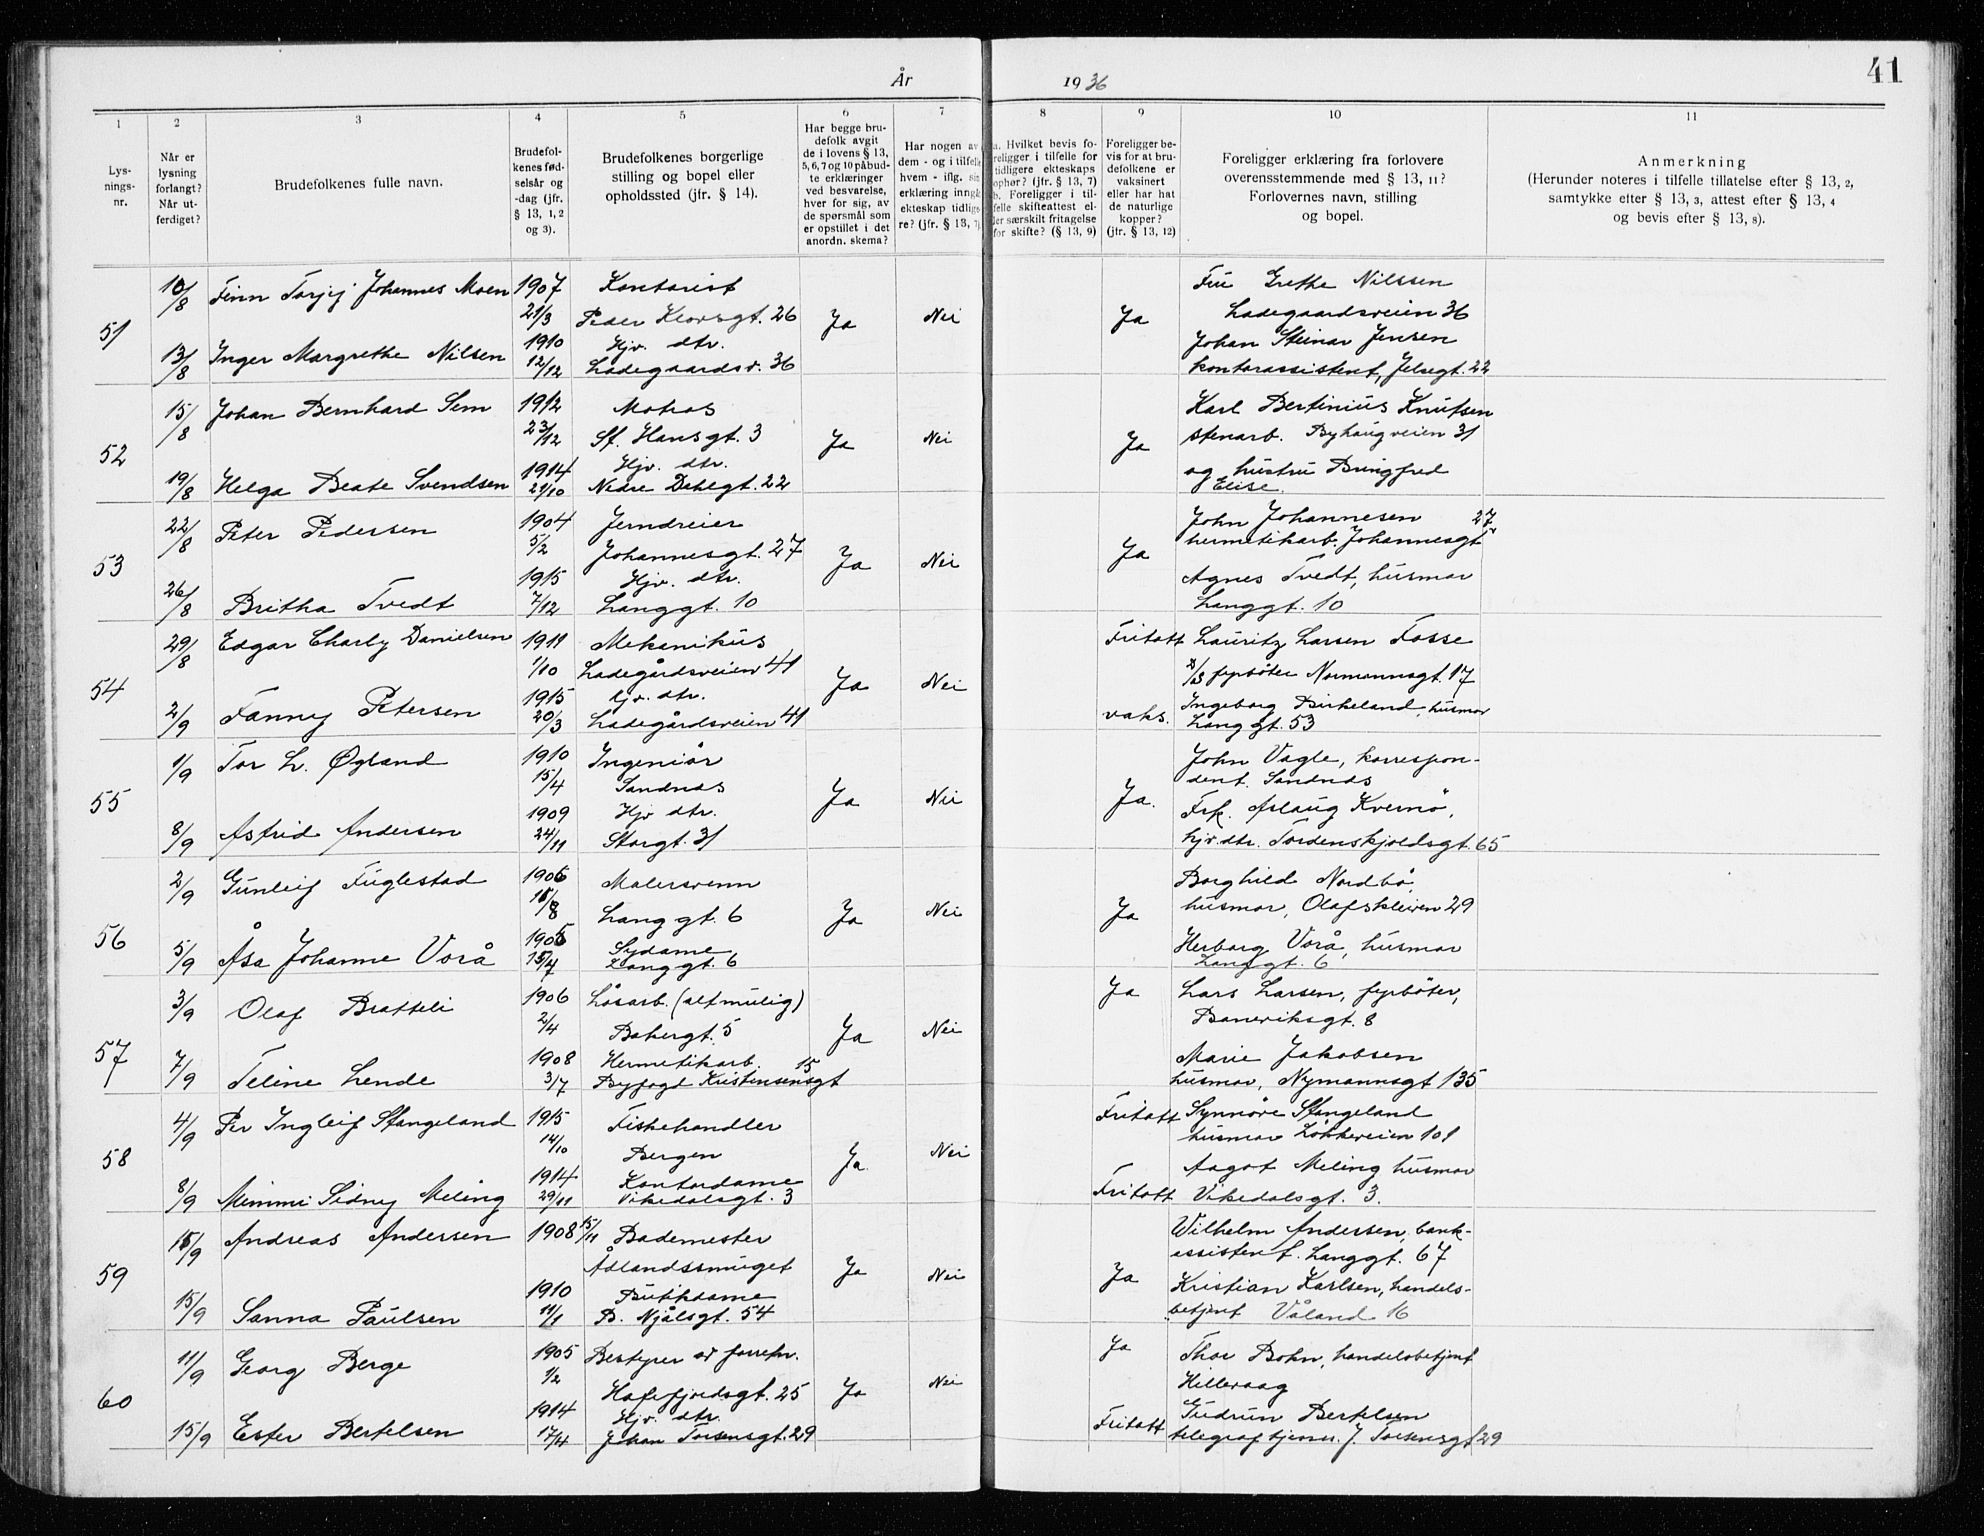 År 1936
41
1 2 3 4 5 6 7 8 9 10 11
Lys-
nings-
nr.
Når er
lysning
forlangt?
Når ut-
ferdiget?
Brudefolkenes fulle navn.
Brudefol-
kenes fød-
selsår og
-dag (jfr.
§ 13, 1, 2
og 3).
Brudefolkenes borgerlige
stilling og bopel eller
opholdssted (jfr. § 14).
Har begge bru-
defolk avgit
de i lovens § 13,
5, 6, 7 og 10 påbud-
te erklæringer
ved besvarelse,
hver for sig, av
de spørsmål som
er opstillet i det
anordn. skema?
Har nogen av
dem - og i tilfelle
hvem - iflg. sin
erklæring inngåt
ekteskap tidlige-
re? (jfr. § 13, 7)
a. Hvilket bevis fo-
religger i tilfelle for
tidligere ekteskaps
ophør? (jfr. § 13, 7)
b. Foreligger i til-
felle skifteattest el-
ler særskilt fritagelse
for skifte? (§ 13, 9)
Foreligger be-
vis for at bru-
defolkene er
vaksinert
eller har hat
de naturlige
kopper?
(jfr. § 13, 12)
Foreligger erklæring fra forlovere
overensstemmende med § 13, 11?
Forlovernes navn, stilling
og bopel.
Anmerkning
(Herunder noteres i tilfelle tillatelse efter § 13, 2,
samtykke efter § 13, 3, attest efter § 13, 4
og bevis efter § 13, 8).
51
10/8 Finn Torjij Johannes Moen 1907 Kontorist
21/3 Peder Klowsgt. 26 Ja Nei Ja
13/8 Inger Margrethe Nilsen 1910 Hjv. dtr.
12/12 Ladegaardsv. 36
Fru Grethe Nilssen
Ladegaardsveien 36
Johan Steinar Jensen
kontorassistent, Jelsegt. 22
52
15/8 Johan Bernhard Sem 1912 Matros
23/12 St. Hansgt. 3 Ja Nei Ja
19/8 Helga Beate Svendsen 1914 Hjv. dtr.
29/10 Nedre Dalgt. 22
Karl Bertinius Knutsen
stenarb. Byhaugveien 31
og hustru Bringfred
Elise
53
22/8 Peter Pedersen 1904 Jerndreier
5/2 Johannesgt. 27 Ja Nei Ja
26/8 Britha Tvedt 1915 Hjv. dtr.
7/12 Langgt. 10
John Johannesen 27
hermetikarb. Johannesgt
Agnes Tvedt, husmor
Langgt. 10
54
29/8 Edgar Charly Danielsen 1911 Mekanikus
1/10 Ladegårdsveien 41 Ja Nei Fritatt
2/9 Fanny Petersen 1915 hjv. dtr.
20/3 Ladegårdsveien 41 vaks.
Lauritz Larsen Fosse
fyrbøter Normannsgt. 17
Ingeborg Birkeland, husmor
Langgt. 53
55
1/9 Tor L. Øgland 1910 Ingeniør
15/4 Sandnes Ja Nei Ja.
8/9 Astrid Andersen 1909 Hjv dtr.
24/11 Storgt. 31
John Vagle, korrespon-
dent. Sandnes
Frk. Aslaug Kvernø,
hjv. dtr. Tordenskjoldsgt. 65
56
2/9 Gunleif Fuglestad 1906 Malersvenn
/8 Langgt. 6 Ja Nei Ja
5/9 Åsa Johanne Vorå 1905 Sydame
15/4 Langgt. 6
Borghild Nordbø,
husmor, Olafskleiven 29
Herborg Vorå, husmor
Langgt. 6
57
3/9 Olaf Bratteli 1906 Løsarb. (altmulig)
2/4 Bakergt. 5 Ja Nei Ja
7/9 Teline Lende 1908 Hermetikarb.
3/7 Byfogd Kristensensgt 15
Lars Larsen, fyrbøter,
Baneviksgt. 8
Marie Jakobsen
husmor, Nymannsgt 135
58
4/9 Per Ingleif Stangeland 1915 Fiskehandler
14/10 Bergen Ja Nei Fritatt
8/9 Mimmi Sidney Meling 1914 Kontordame
29/11 Vikedalsgt. 3 Fritatt
Synnøve Stangeland
husmor Løkkeveien 101
Aagot Meling husmor
Vikedalsgt. 3.
59
/9 Andreas Andersen 1908 15/11 Bademester
Ådlandssmuget Ja Nei Ja
15/9 Sanna Paulsen 1910 Butikdame
11/1 B. Njålsgt. 54
Wilhelm Andersen, bank-
assistent. Langgt. 67
Kristian Karlsen, handels-
betjent Våland 16
60
11/9 Georg Berge 1905 Bestyrer av forretn.
1/2 Hafrsfjordsgt. 25 Ja Nei Ja
15/9 Ester Bertelsen 1914 Hjv. dtr.
17/4 Johan Torsensgt. 29 Fritatt
Thor Bohn, handelsbetjent
Hillevaag
Gudrun Bertelsen
telegraftjenm. J. Torsensgt 29